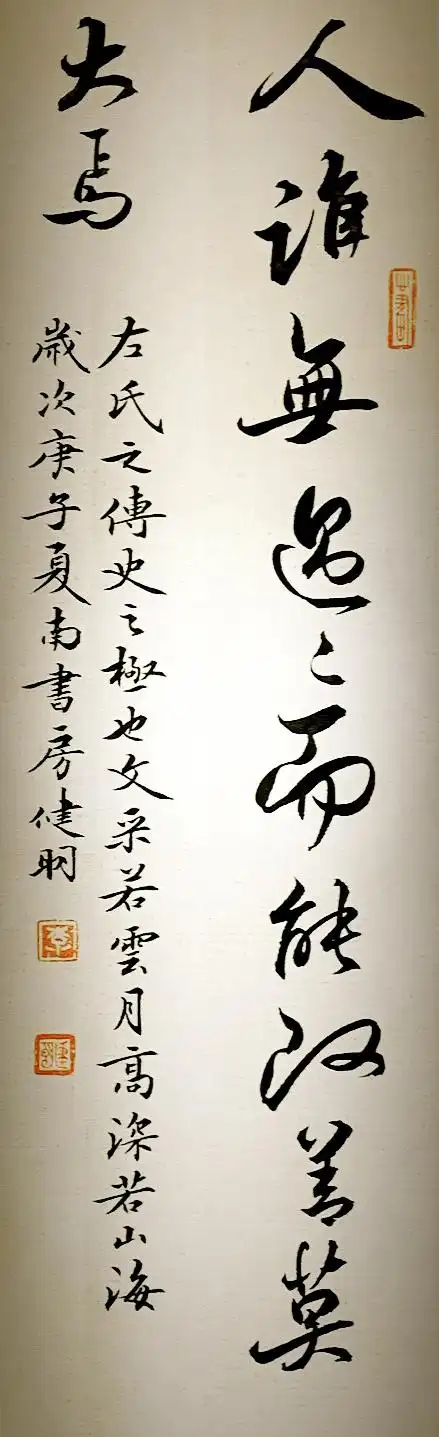 人誰無過〻而能改善莫
大焉
左氏之傳史之極也文采若雲月高深若山海
歲次庚子夏南書房健羽